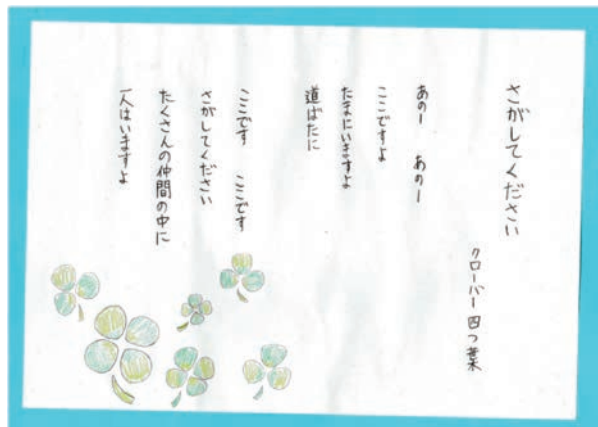 さがしてください
クローバー四つ葉
あのー　あのー
ここですよ
たまにいますよ
道ばたに
ここです　ここです
さがしてください
たくさんの仲間の中に
一人はいますよ